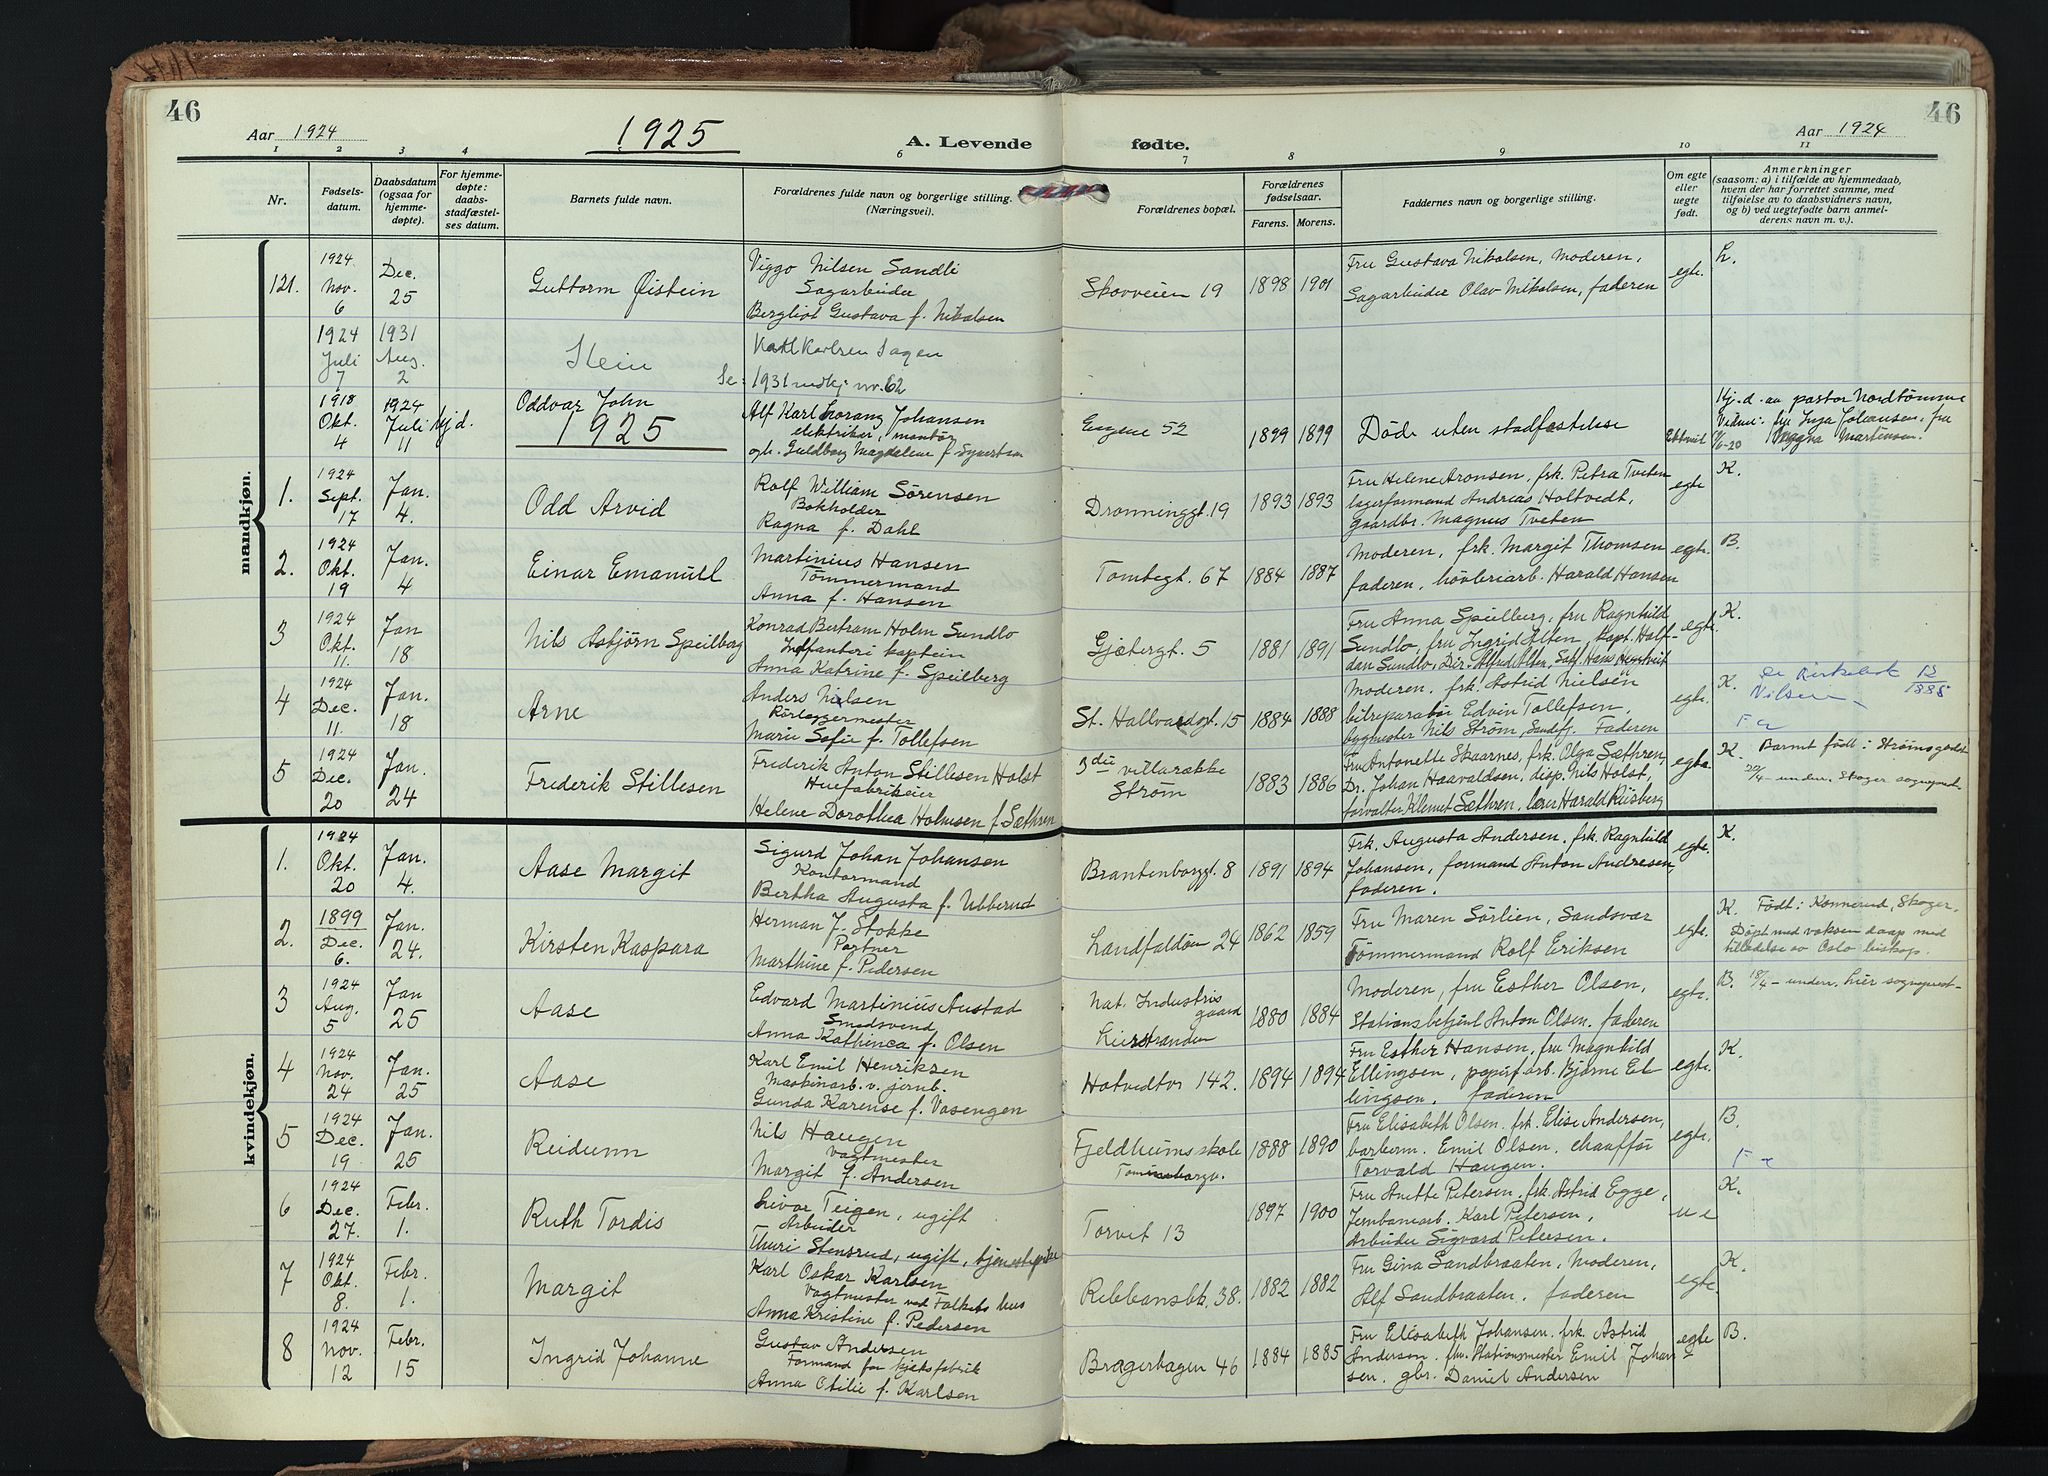 46
46
Aar 1924
1925
A. Levende
fødte.
Aar 1924
1 2 3 4 6 7 8 9 10 11
Nr.
Fødsels-
datum.
Daabsdatum
(ogsaa for
hjemme-
døpte).
For hjemme-
døpte:
daabs-
stadfæstel-
ses datum.
Barnets fulde navn.
Forældrenes fulde navn og borgerlige stilling.
(Næringsvei).
Forældrenes bopæl.
Forældrenes
fødselsaar.
Farens. Morens.
Faddernes navn og borgerlige stilling.
Om egte
eller
uegte
født.
Anmerkninger
(saasom: a) i tilfælde av hjemmedaab,
hvem der har forrettet samme, med
tilføielse av to daabsvidners navn,
og b) ved uegtefødte barn anmel-
derens navn m. v.).
mandkjøn.
121.
1924
Nov.
6
Dec.
25
Guttorm Øistein
Viggo Nilsen Sandli
Sagarbeider
Bergliot Gustava f. Nikolsen
Skovveien 19
1898 1901
Fru Gustava Nikolsen, Moderen,
Sagarbeider Olav Nikolsen, faderen
egte.
L.
1924
Juli
7
1931
Aug.
2
Stein
Se:
Karl Karlsen Sagen
1931 mdkj. nr. 62
1918
Okt.
4
1924
Juli
11
Hj.d.
Oddvar John
1925
Alf Karl Lorang Johansen
elektriker, montør
Guldborg Magdalene f. Syvertsen
Engene 52
1899 1899
Død uten stadfæstelse
Hj. d. av pastor Nordtømme
Inga Johansen, fru
Magna Martinsen.
1.
1924
Sept.
17
Jan.
4.
Odd Arvid
Rolf William Sørensen
Bokholder
Ragna f. Dahl
Dronninggt. 19
1893 1893
Fru Helene Aronsen, frk. Petra Tveten
lagerformand Andreas Holtvedt,
gaardbr. Magnus Tveten
egte
K.
2.
1924
Okt.
19
Jan.
4
Einar Emanuel
Martinius Hansen
Tømmermand
Anna f. Hansen
Tomtegt. 67
1884 1887
Moderen, frk. Margit Thomsen
faderen, høvleriarb. Harald Hansen
egte.
B.
3
1924
Okt.
11.
Jan
18
Nils Asbjørn Speilberg
Konrad Bertram Holm Sundlo
Infanteri kaptein
Anna Katrine f. Speilberg
Gjetergt. 5
1881 1891
Fru Anna Speilberg, fru Ragnhild
Sundlo, fru Ingrid Alten, kapt. Half-
dan Sundlo, Dir. Alfred Alten, Sakf. Hans
egte.
K.
4
1924
Dec.
11.
Jan.
18
Arne
Anders Nielsen
Rørleggermester
Marie Sofie f. Tollefsen
St. Hallvardsgt. 15
1884 1888
Moderen, frk. Astrid Nielsen
bilreparatør Edvin Tollefsen,
bygmester Nils Strøm, Sandefj. Faderen
egte.
K.
Nilsen
5
1924
Dec.
20
Jan.
24
Frederik Stillesen
Frederik Anton Stillesen Holst
Huefabrikeier
Helene Dorothea Holmsen f. Sæthren
3die villarække
Strøm
1883 1886
Fru Antonette Skaarnes, frk. Olga Sæthren,
Dr. Johan Haavaldsen, disp. Nils Holst,
forvalter Klemet Sæthren, lærer Harald Riisberg
egte.
K. Barnet født i Strømsgodset
20/4 - underr. Skoger sogneprest -
kvindekjøn.
1.
1924
Okt.
20
Jan.
4.
Aase Margit
Sigurd Johan Johansen
Kontormand
Bertha Augusta f. Ubberud
Brantenborggt. 8
1891 1894
Frk. Augusta Andersen, frk. Ragnhild
Johansen, formand Anton Andresen,
faderen.
egte.
K.
2.
1899
Dec.
6.
Jan.
24.
Kirsten Kaspara
Herman J. Stokke
Portner
Marthine f. Pedersen
Landfaldøen 24
1862 1859
Fru Maren Sørlien, Sandsvær
Tømmermand Rolf Eriksen
egte.
K. Født i Konnerud, Skoger.
Døpt med voksen daap med
tilladelse av Oslo biskop.
3
1924
Aug.
5
Jan
25
Aase
Edvard Martinius Austad
Smedsvend
Anna Kathinca f. Olsen
Nat. Industris
gaard
Lierstranden
1880 1884
Moderen, fru Esther Olsen,
Stationsbetjent Anton Olsen, faderen
egte.
B. 18/4 - underr. Lier sogneprest -
4
1924
Nov.
24
Jan.
25
Aase
Karl Emil Henriksen
Maskinarb. v. jernb.
Gunda Karense f. Vasengen
Hotvedtvn 142.
1894 1894
Fru Esther Hansen, fru Magnhild
Ellingsen, papirfarb. Bjarne El-
lingsen, faderen
egte.
K.
5
1924
Dec.
19
Jan.
25
Reidunn
Nils Haugen
Vagtmester
Margit f. Andersen
Fjeldheims skole
1888 1890
Fru Elisabeth Olsen, frk. Elise Andersen,
barberm. Emil Olsen, chauffør
Torvald Haugen.
egte.
B.
6
1924
Dec.
27.
Febr.
1.
Ruth Tordis
Sivar Teigen, ugift
Arbeider
Thuri Stensrud, ugift, tjenestepike
Torvet 13
1897 1900
Fru Anette Petersen, frk. Astrid Egge,
Jernbanearb. Karl Petersen,
Arbeider Sigvard Petersen.
u e
K.
7
1924
Okt.
8.
Febr.
1.
Margit
Karl Oskar Karlsen
Vagtmester ved Folkets hus
Anna Kristine f. Pedersen
Rebbansbk. 38.
1882 1882
Fru Gina Sandbraaten, Moderen,
Alf Sandbraaten, faderen
egte
K.
8
1924
Nov.
12
Febr.
15
Ingrid Johanne
Gustav Andersen
Formand for kjeksfabrik
Anna Otilie f. Karlsen
Bragerhagen 46
1884 1885
Fru Elisabeth Johansen, frk. Astrid
Andersen, fhv. Stationsmester Emil Johan
sen, gbr. Daniel Andersen
egte
B.